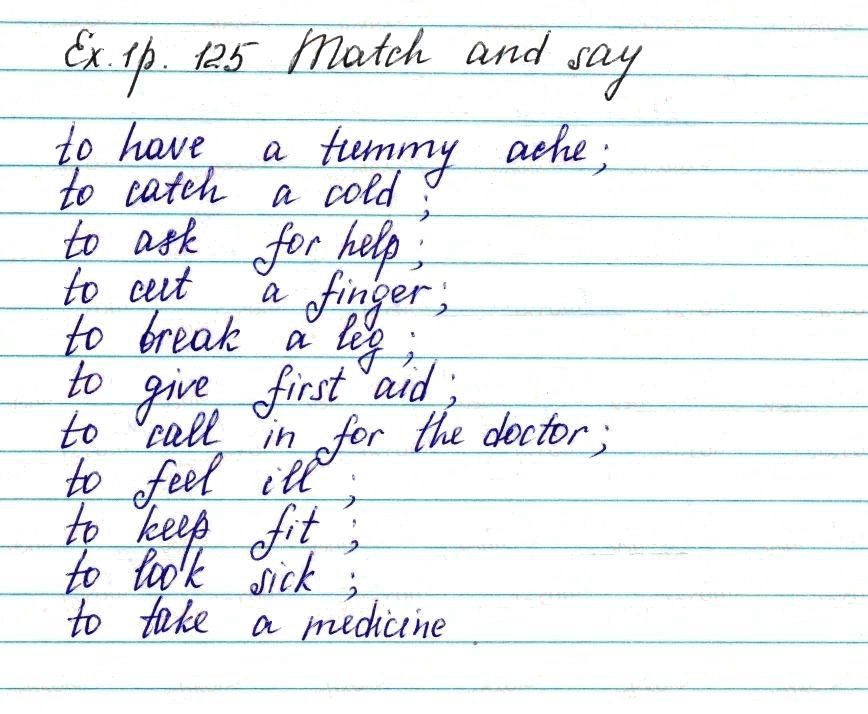 Ex. 1 p. 125 Match and say
to have a tummy ache;
to catch a cold;
to ask for help;
to cut a finger;
to break a leg;
to give first aid;
to call in for the doctor;
to feel ill;
to keep fit;
to look sick;
to take a medicine.